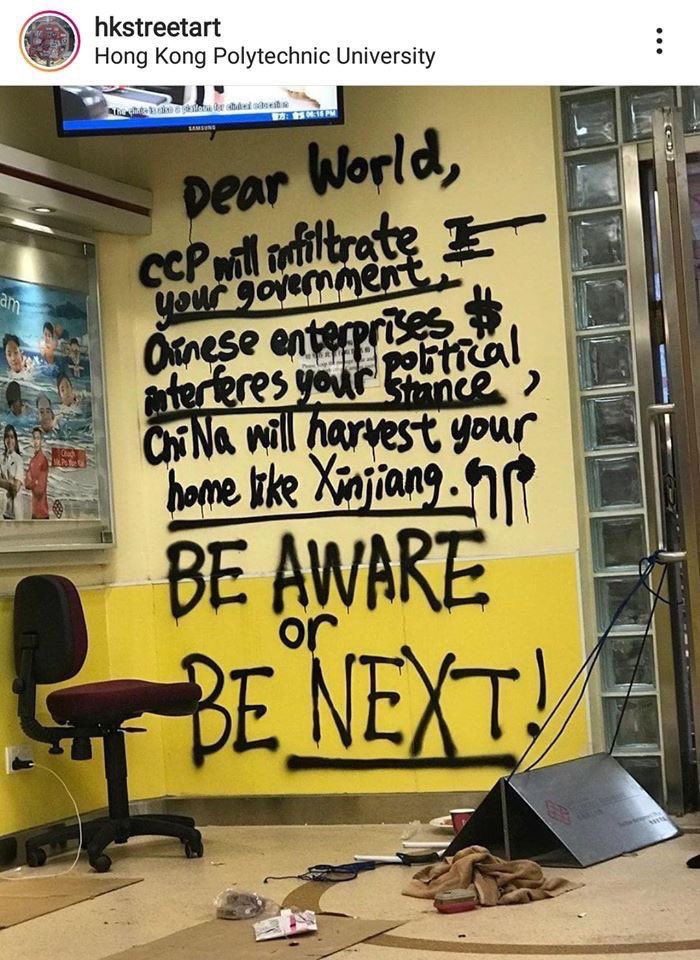 hkstreetart
Hong Kong Polytechnic University
The clinic is also a platform for clinical education
06:16 PM
SAMSUNG
Dear World,
CCP will infiltrate
your government,
Chinese enterprises $
interferes your political
stance,
ChiNa will harvest your
home like Xinjiang.
BE AWARE
or
BE NEXT!
am
Coach